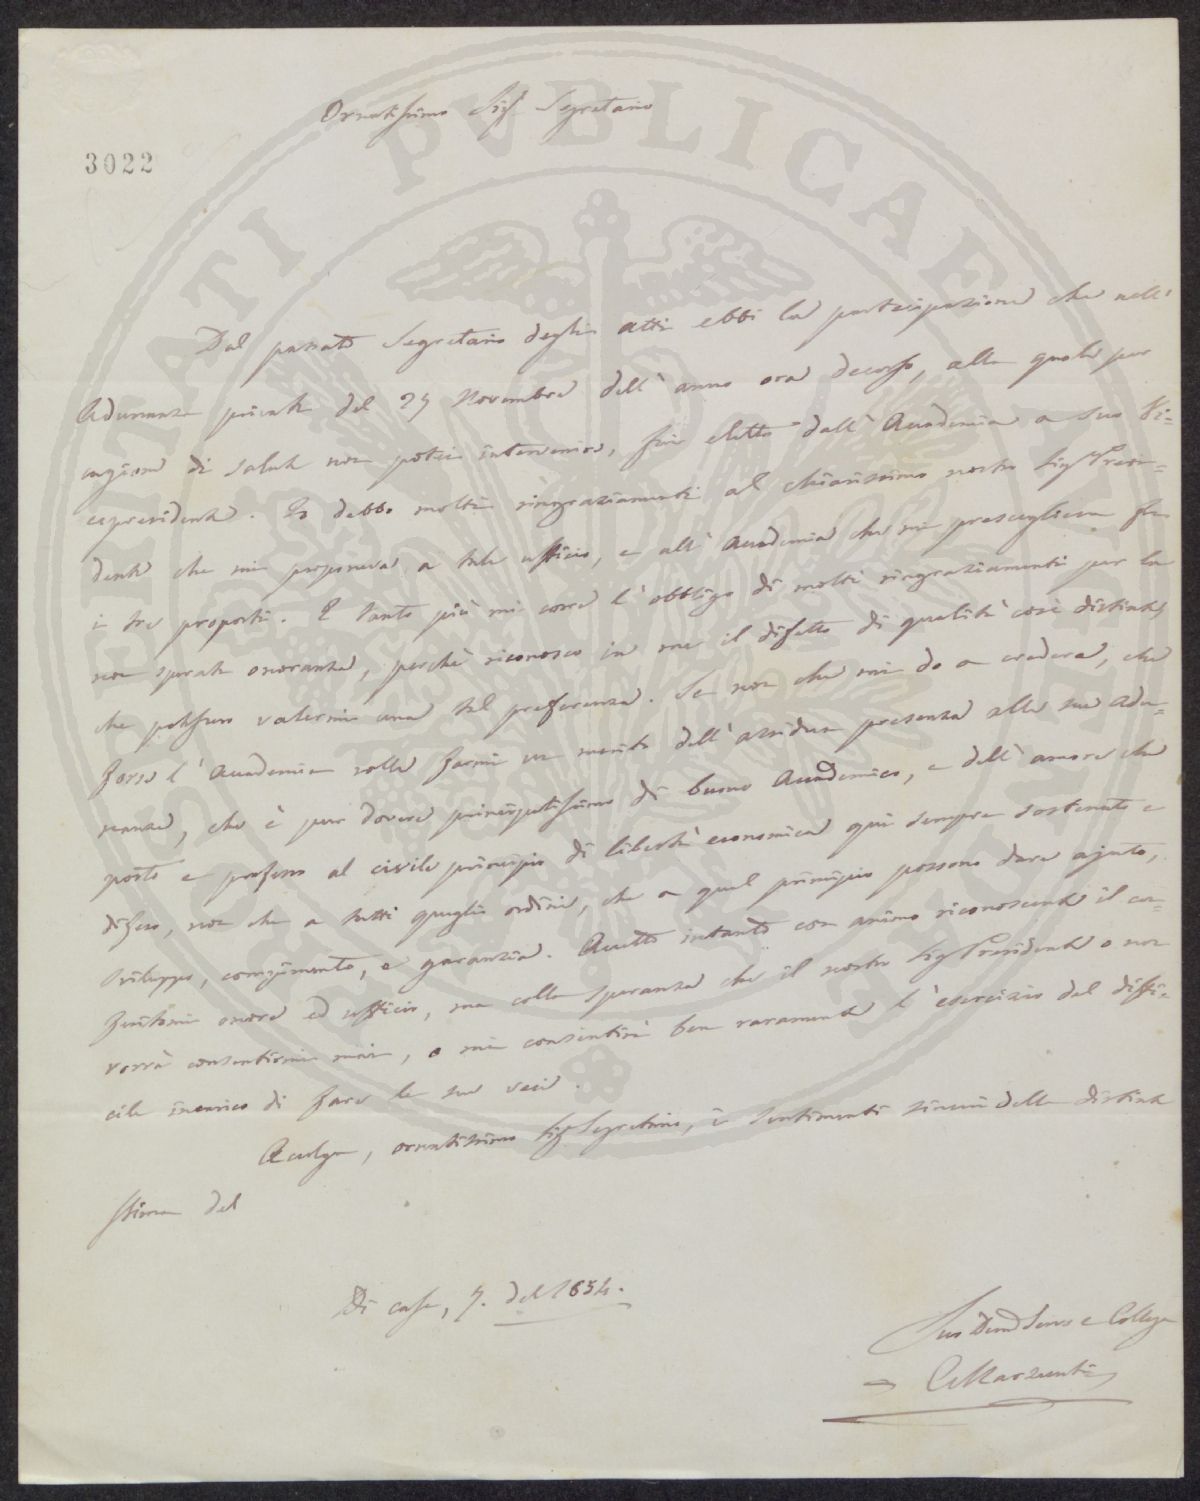 Ornatissimo Sig.r Segretario
3022
Dal passato Segretario degli Atti ebbi la partecipazione che nell'
Adunanza privata del 29 Novembre dell'anno ora decorso, alla quale per
cagione di salute non potei intervenire, fui eletto dall'Accademia a suo Vi-
cepresidente. Io debbo molti ringraziamenti al chiarissimo nostro Sig Presi-
dente che mi proponeva a tale ufficio, e all'Accademia che mi prescegliea fra
i tre proposti. E tanto più mi corre l'obbligo di molti ringraziamenti per la
non sperata onoranza, perchè riconosco in me il difetto di qualità così distinte,
che potessero valermi una tal preferenza. Se non che mi do a credere, che
forse l'Accademia volle farmi un merito dell'assidua presenza alle sue Adu-
nanze, che è pur dovere principalissimo di buono Accademico, e dell'amore che
porto e professo al civile principio di libertà economica qui sempre sostenuto e
difeso, non che a tutti quegli ordini, che a quel principio possono dare ajuto,
sviluppo, compimento, e garanzia. Accetto intanto con animo riconoscente il con-
feritomi onore ed ufficio, ma colla speranza che il nostro Sig Presidente o non
vorrà consentirmi mai, o mi consentirà ben raramente l'esercizio del diffi-
cile incarico di fare le sue veci.
Accolga, ornatissimo Sig Segretario, i sentimenti sinceri della distinta
stima del
Di casa, 7. del 1854.
Suo Servo e Collega
C. Marzucchi